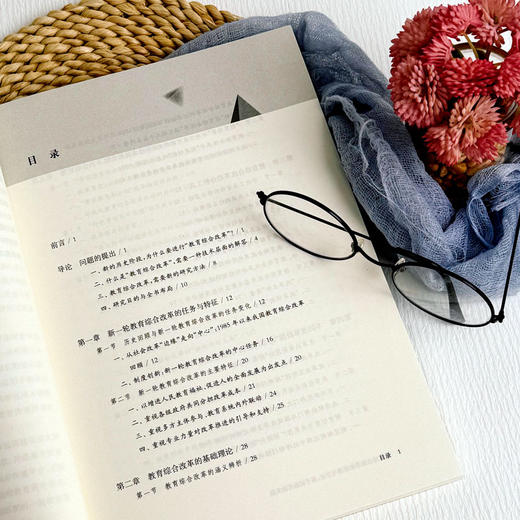 目 录
前言 / 1
导论 问题的提出 / 1
一、新的历史阶段,为什么要进行“教育综合改革”? / 1
二、什么是“教育综合改革”,需要一种技术层面的解答 / 4
三、教育综合改革,需要新的研究方法 / 8
四、研究目的与全书布局 / 10
第一章 新一轮教育综合改革的任务与特征 / 12
第一节 历史回顾与新一轮教育综合改革的任务变化 / 12
一、从社会改革“边缘”走向“中心”,1985年以来我国教育综合改革
回顾 / 12
二、制度创新,新一轮教育综合改革的中心任务 / 16
第二节 新一轮教育综合改革的主要特征 / 20
一、以增进人民教育福祉、促进人的全面发展为出发点 / 20
二、重视各级政府共同分担改革成本 / 21
三、重视多方主体参与、教育系统内外联动 / 24
四、重视专业力量对改革推进的引导和支持 / 25
第二章 教育综合改革的基础理论 / 28
第一节 教育综合改革的涵义辨析 / 28
目录 1